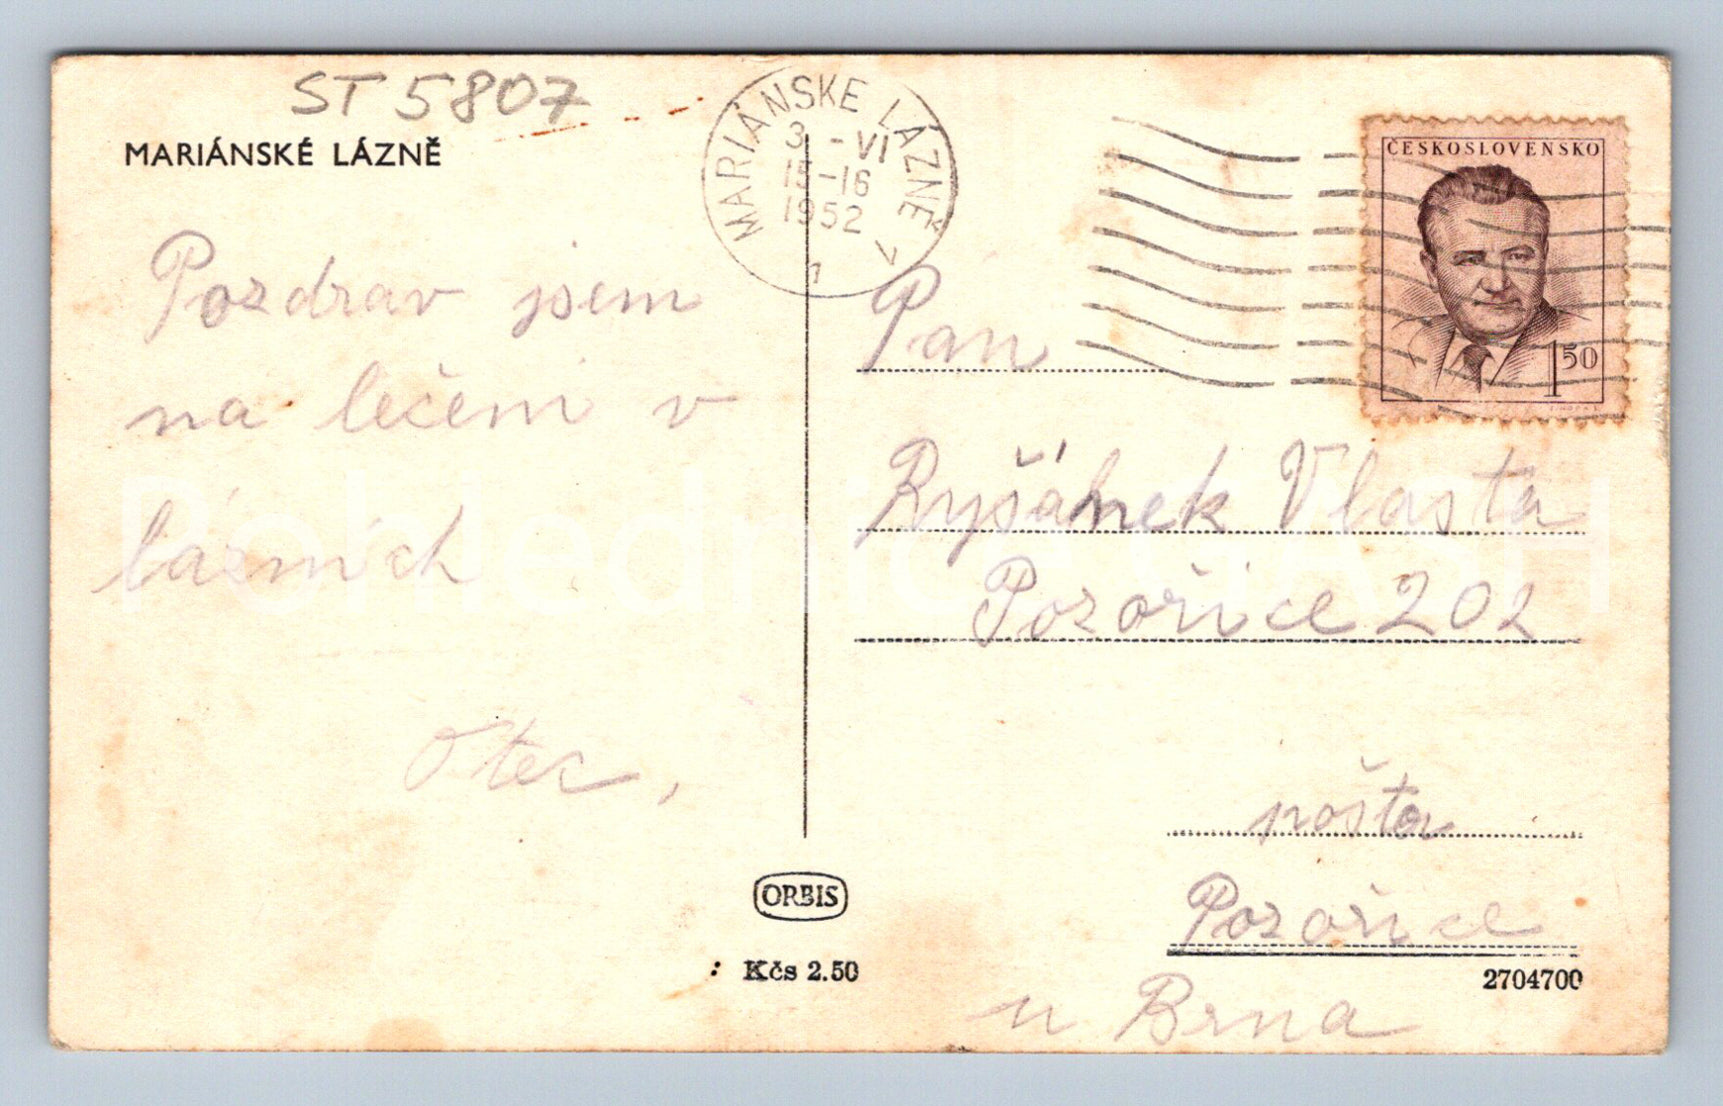 ST 5807
MARIÁNSKÉ LÁZNĚ
MARIÁNSKÉ LÁZNĚ
3 -VI
15-16
1952
1
ČESKOSLOVENSKO
1 50
Pozdrav jsem
na léčení v
lázních
Otec,
Pan
Ryšánek Vlasta
Pozořice 202
pošta
Pozořice
u Brna
ORBIS
Kčs 2.50
2704700